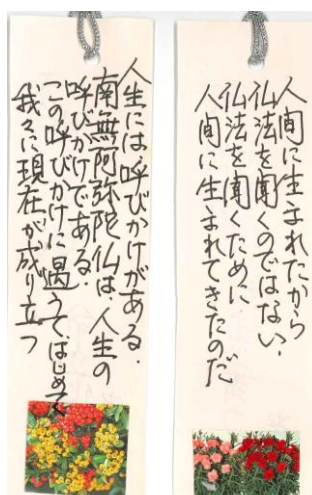 人間に生まれたから
仏法を聞くのではない、
仏法を聞くために
人間に生まれてきたのだ
人生には呼びかけがある.
南無阿弥陀仏は、人生の
呼びかけである.
この呼びかけに遇うて、はじめて
我々に現在が成り立つ